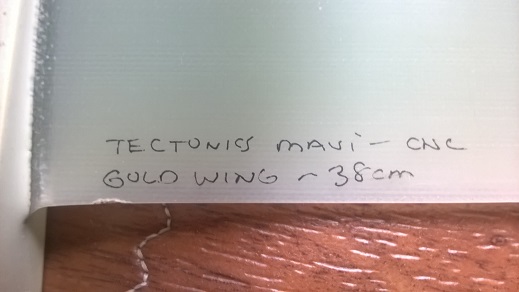 TECTONICS MAUI - CNC
GOLD WING ~ 38cm